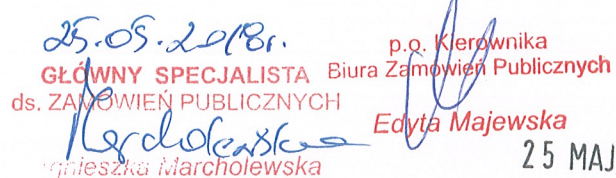 25.05.2018r.
GŁÓWNY SPECJALISTA
ds. ZAMÓWIEŃ PUBLICZNYCH
Marcholewska
Agnieszka Marcholewska
p.o. Kierownika
Biura Zamówień Publicznych
Edyta Majewska
25 MAJ